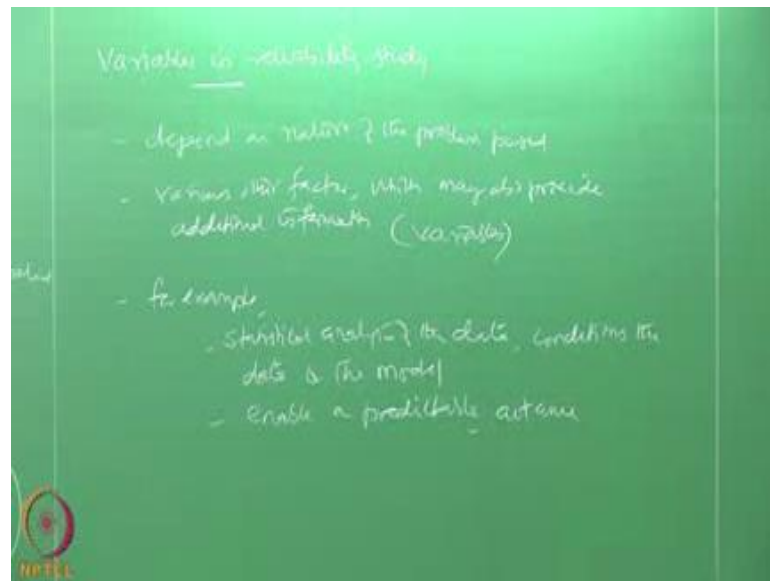 Variables in reliability study
- depend on nature of the problem posed
- various other factor, which may also provide
additional information (variables)
- for example,
- statistical analysis of the data, conditions the
data & the model
- enable a predictable outcome
NPTEL